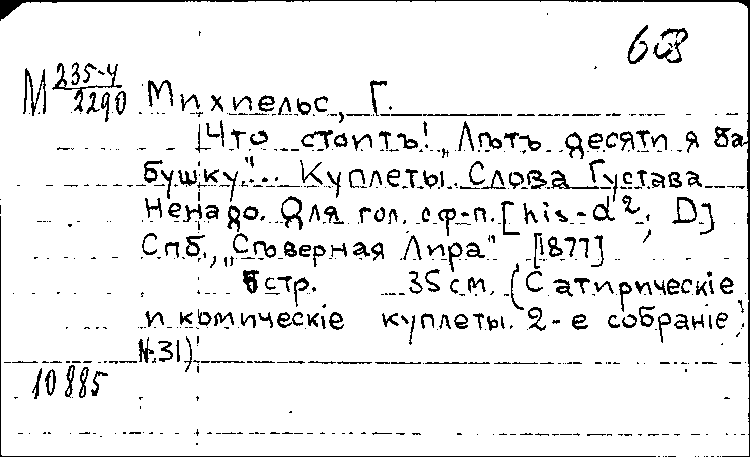 608
М 235-4/2290 Михпельс, Г.
Что стоитъ! „Лѣтъ десяти я ба
бушку"... Куплеты. Слова Густава
Ненадо. Для гол. с ф-п. [his-d²; D]
Спб., „Сѣверная Лира" [1877]
5 стр. 35 см. (Сатирическіе
и комическіе куплеты. 2-е собраніе,
№31)
10885